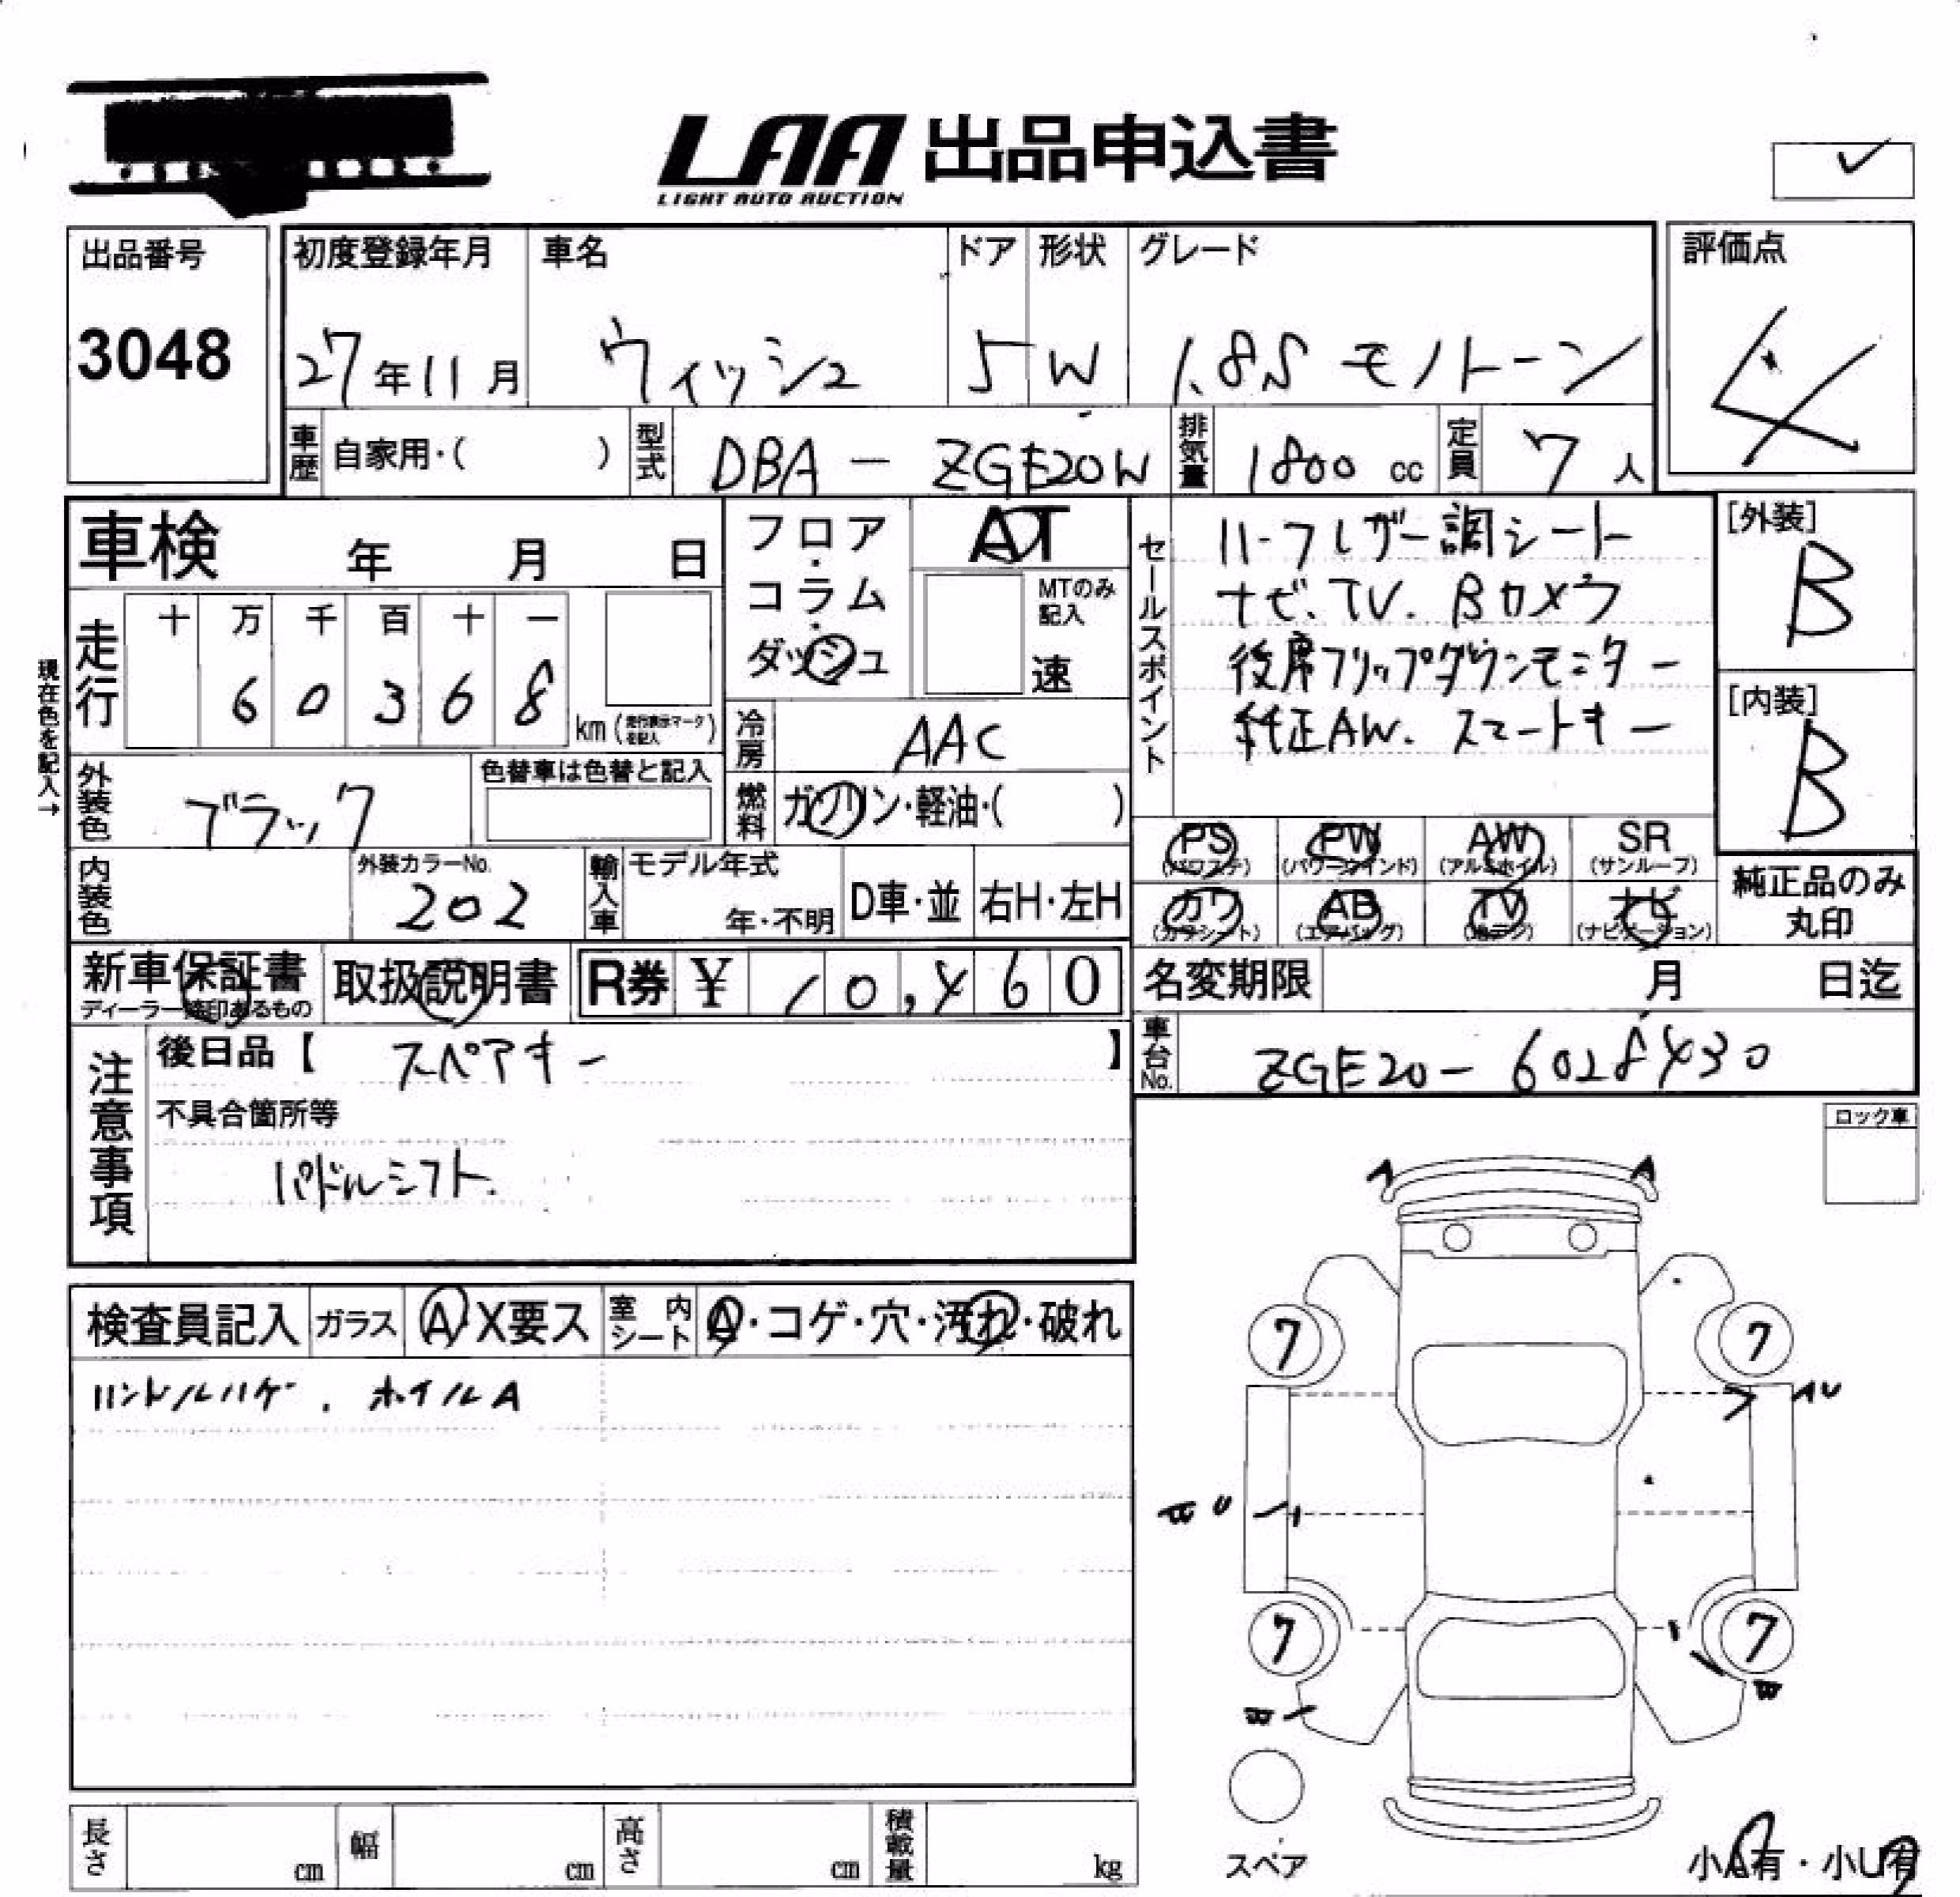 LAA 出品申込書
LIGHT AUTO AUCTION
出品番号
3048
初度登録年月
27年11月
車名
ウィッシュ
ドア
5
形状
W
グレード
1.8S モノトーン
評価点
4
車歴
自家用・( )
型式
DBA - ZGE20W
排気量
1800 cc
定員
7人
車検 年 月 日
現在色を記入→
走行
十 万 千 百 十 一
6 0 3 6 8
km(走行表示マークを記入)
フロア・コラム・ダッシュ
AT
MTのみ記入
速
冷房
AAC
燃料
ガソリン・軽油・( )
外装色
ブラック
色替車は色替と記入
内装色
外装カラーNo.
202
輸入車
モデル年式
年・不明
D車・並
右H・左H
セールスポイント
ハーフレザー調シート
ナビ、TV. Bカメラ
後席フリップダウンモニター
純正AW. スマートキー
[外装]
B
[内装]
B
PS
(パワステ)
PW
(パワーウインド)
AW
(アルミホイル)
SR
(サンルーフ)
カワ
(カワシート)
AB
(エアバッグ)
TV
(地デジ)
ナビ
(ナビゲーション)
純正品のみ
丸印
新車保証書
ディーラー捺印あるもの
取扱説明書
R券 ¥ 10,460
名変期限 月 日迄
車台No.
ZGE20-6028430
注意事項
後日品【 スペアキー 】
不具合箇所等
パドルシフト.
ロック車
検査員記入
ガラス
A・X要ス
室内シート
A・コゲ・穴・汚れ・破れ
ハンドルハゲ . ホイルA
A
A
7
7
7
7
スペア
小A有・小U有
長さ
cm
幅
cm
高さ
cm
積載量
kg